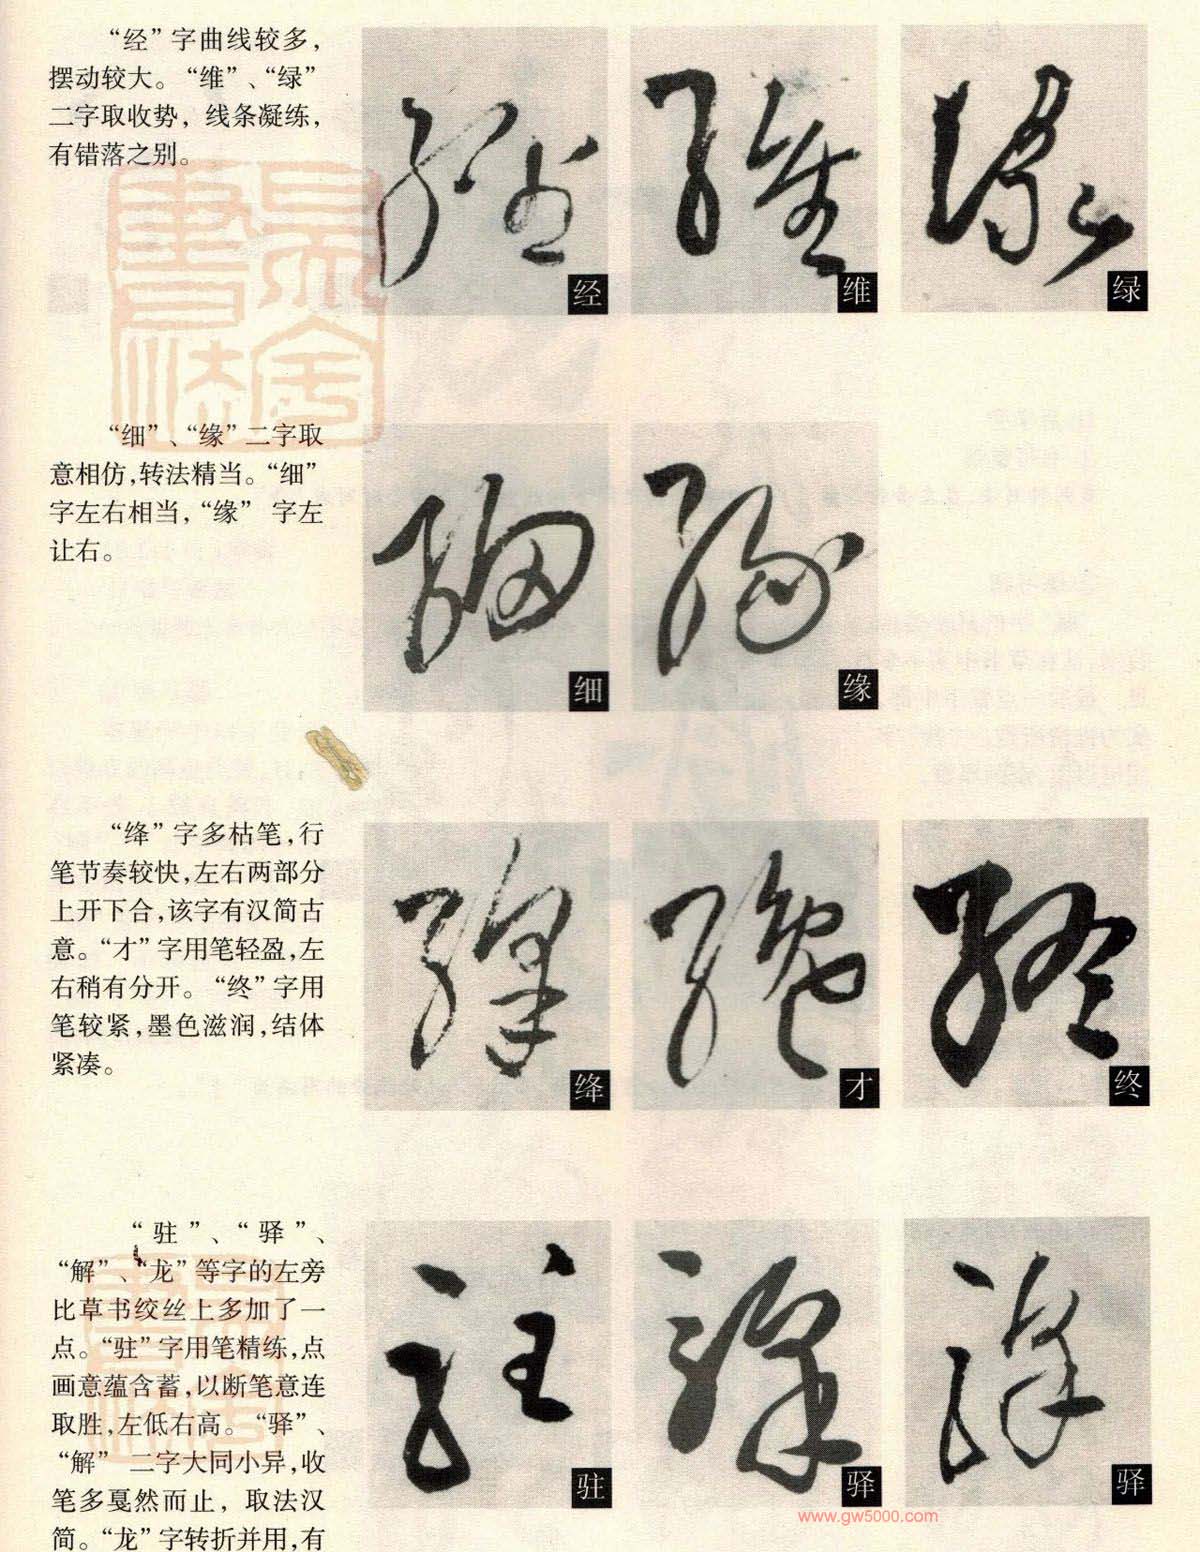 “经”字曲线较多，
摆动较大。“维”、“绿”
二字取收势，线条凝练，
有错落之别。
经
维
绿
“细”、“缘”二字取
意相仿，转法精当。“细”
字左右相当，“缘” 字左
让右。
细
缘
“绛”字多枯笔，行
笔节奏较快，左右两部分
上开下合，该字有汉简古
意。“才”字用笔轻盈，左
右稍有分开。“终”字用
笔较紧，墨色滋润，结体
紧凑。
绛
才
终
“驻”、“驿”、
“解”、“龙”等字的左旁
比草书绞丝上多加了一
点。“驻”字用笔精练，点
画意蕴含蓄，以断笔意连
取胜，左低右高。“驿”、
“解” 二字大同小异，收
笔多戛然而止，取法汉
简。“龙”字转折并用，有
驻
驿
驿
www.gw5000.com